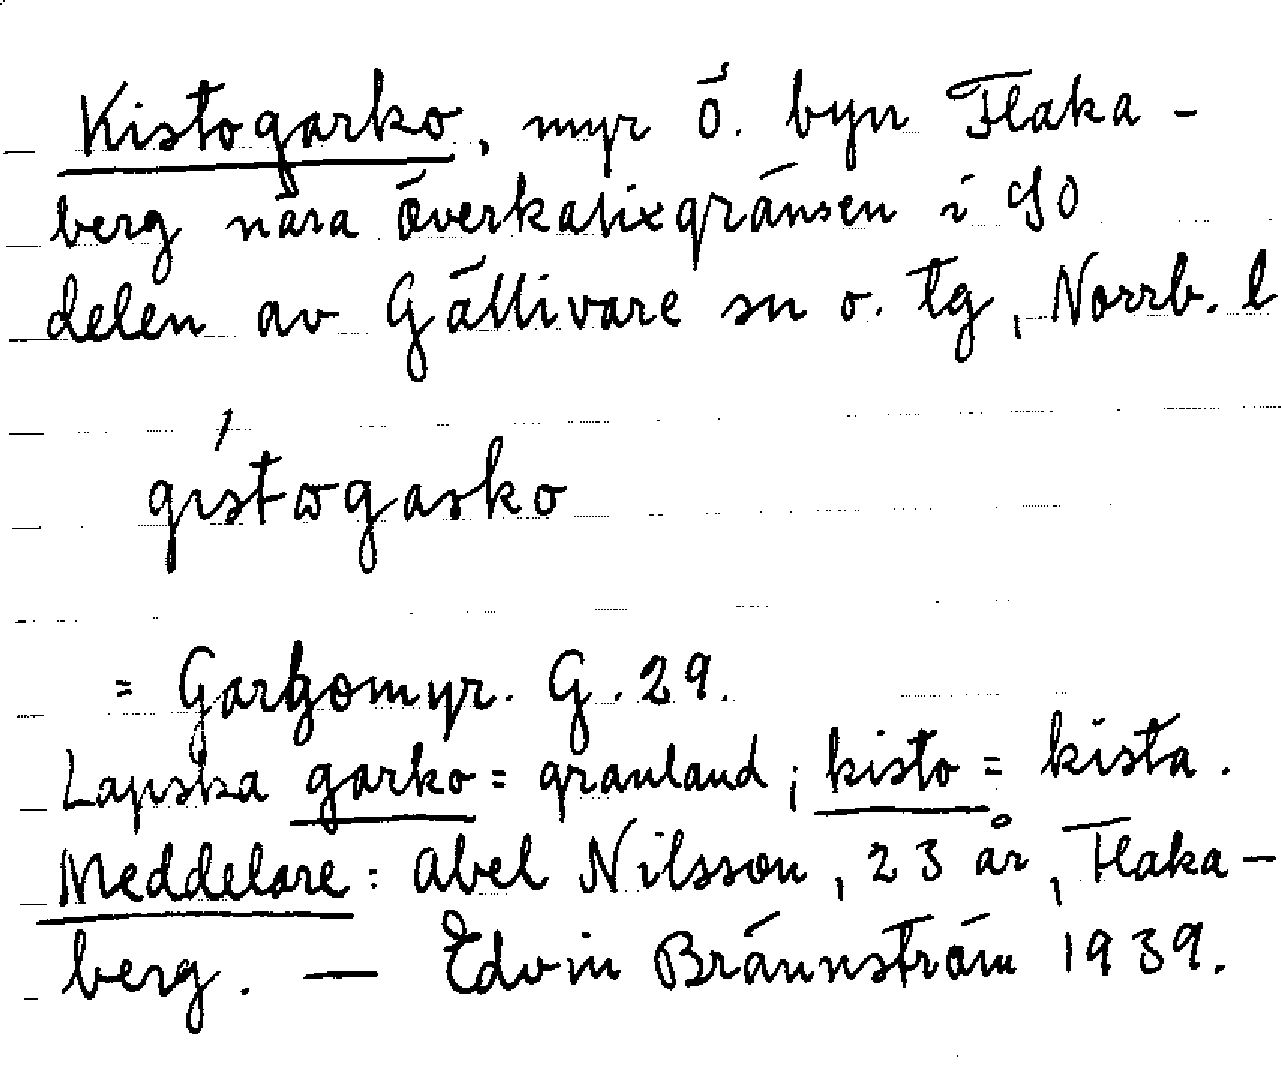 Kistogarko, myr ö. byn Flaka-
berg nära överkalixgränsen i SO
delen av Gällivare sn o. tg, Norrb. l
gistogasko
= Garkomyr. G. 29.
Lapska garko = granland; kisto = kista.
Meddelare: Abel Nilsson, 23 år, Flaka-
berg. — Edvin Brännström 1939.